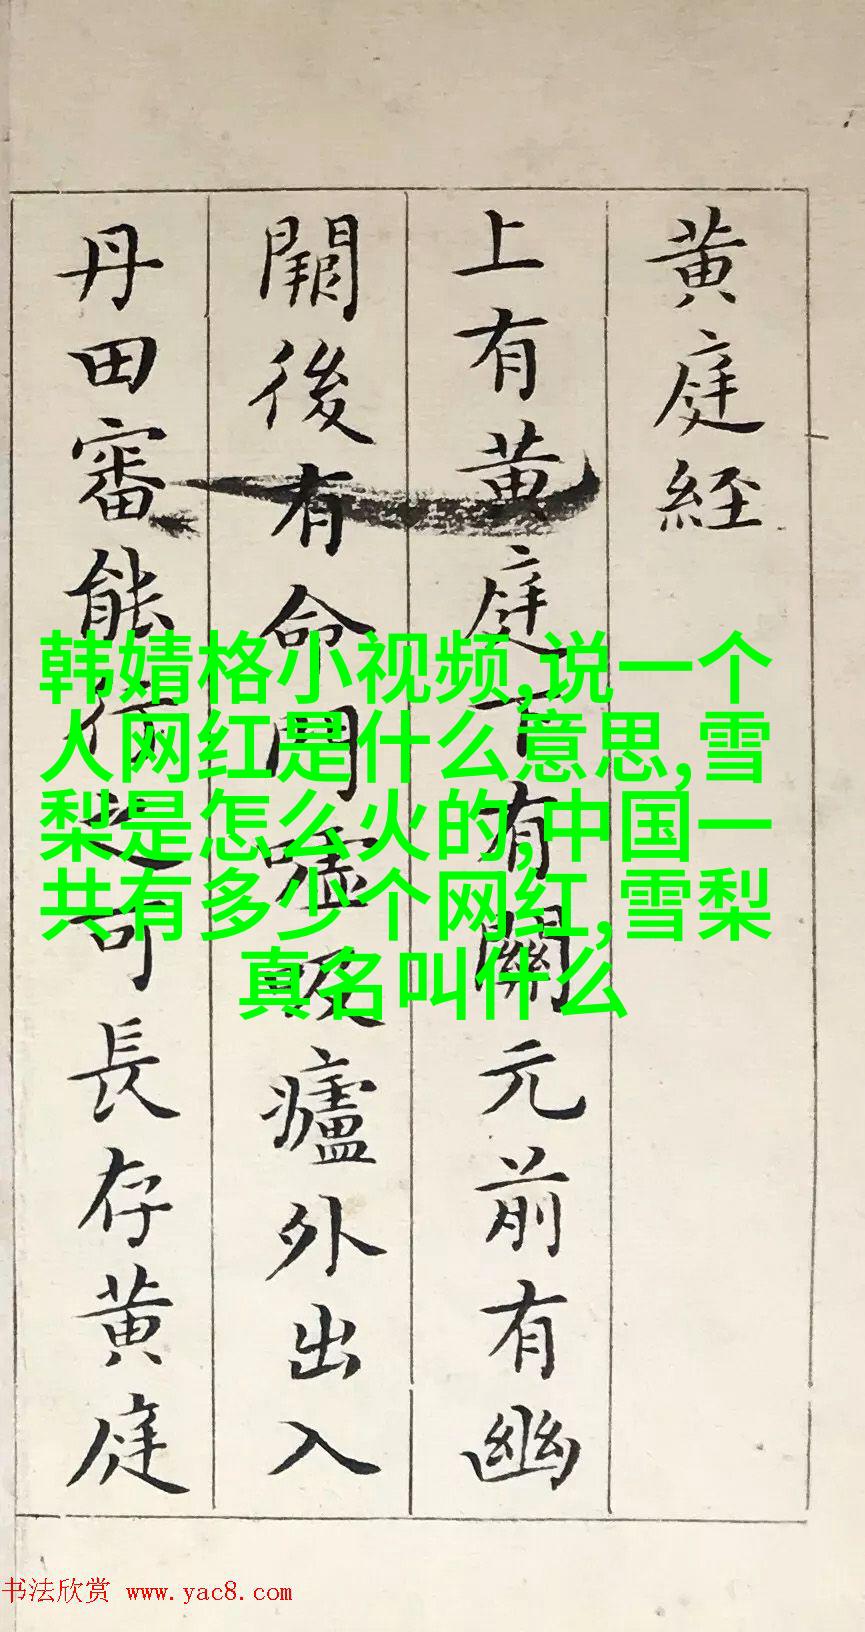 黄庭経
上有黄庭下有關元前有幽
闕後有命門嘘吸廬外出入
丹田審能行之可長存黄庭
韩婧格小视频,说一个
人网红是什么意思,雪
梨是怎么火的,中国一
共有多少个网红,雪梨
真名叫什么
书法欣赏 www.yac8.com